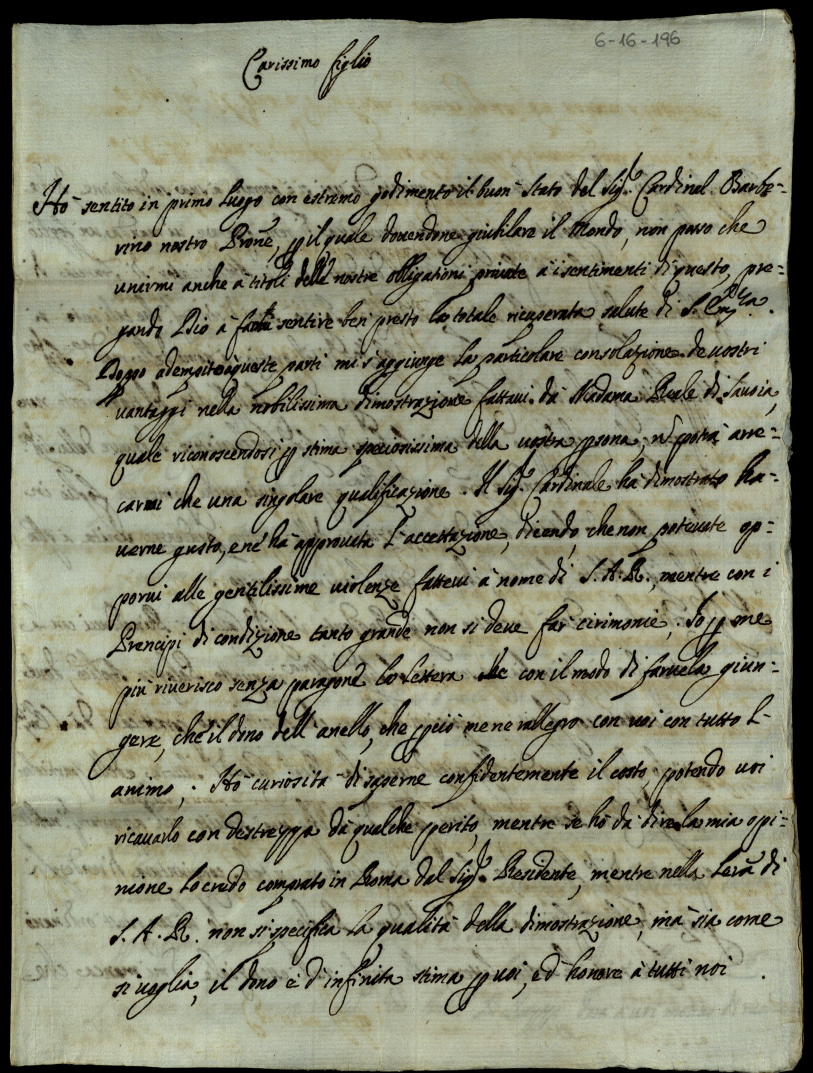 6-16-196
Carissimo figlio
Hò sentito in primo luogo con estremo godimento il buon stato del Sig.r Cardinal Barbe-
rino nostro Prone, p il quale douendone giubilare il Mondo, non posso che
unirmi anche à titoli delle nostre obligationi priuate à i sentimenti di questo, pre-
gando Dio à farli sentire ben presto la totale ricuperata salute di S. Em.za.
Doppo adempite à queste parti mi s'aggiunge la particolare consolazione de vostri
vantaggi nella nobilissima dimostrazione fattaui da Madama Reale di Sauoia,
quale riconoscendosi p stima speciosissima della vostra psona, nõ potrà arre-
carmi che una singolare qualificazione. Il Sig.r Cardinale hà dimostrato ha-
uerne gusto, e ne hà approuata l'accettazione, dicendo, che non poteuate op-
porui alle gentilissime violenze fatteui à nome di S. A. R., mentre con i
Prencipi di condizione tanto grande non si deue far cirimonie. Io p me
più riuerisco senza paragone la lettera con il modo di faruela giun-
gere, che il dono dell'anello, che pciò me ne rallegro con uoi con tutto l'
animo. Hò curiosità di saperne confidentemente il costo, potendo uoi
ricauarlo con destrezza da qualche perito, mentre se hò da dire la mia opi-
nione lo credo comprato in Roma dal Sig.r Residente, mentre nella lera di
S. A. R. non si specifica la qualità della dimostrazione, mà sia come
si uoglia, il dono è d'infinita stima p uoi, ed honore à tutti noi.